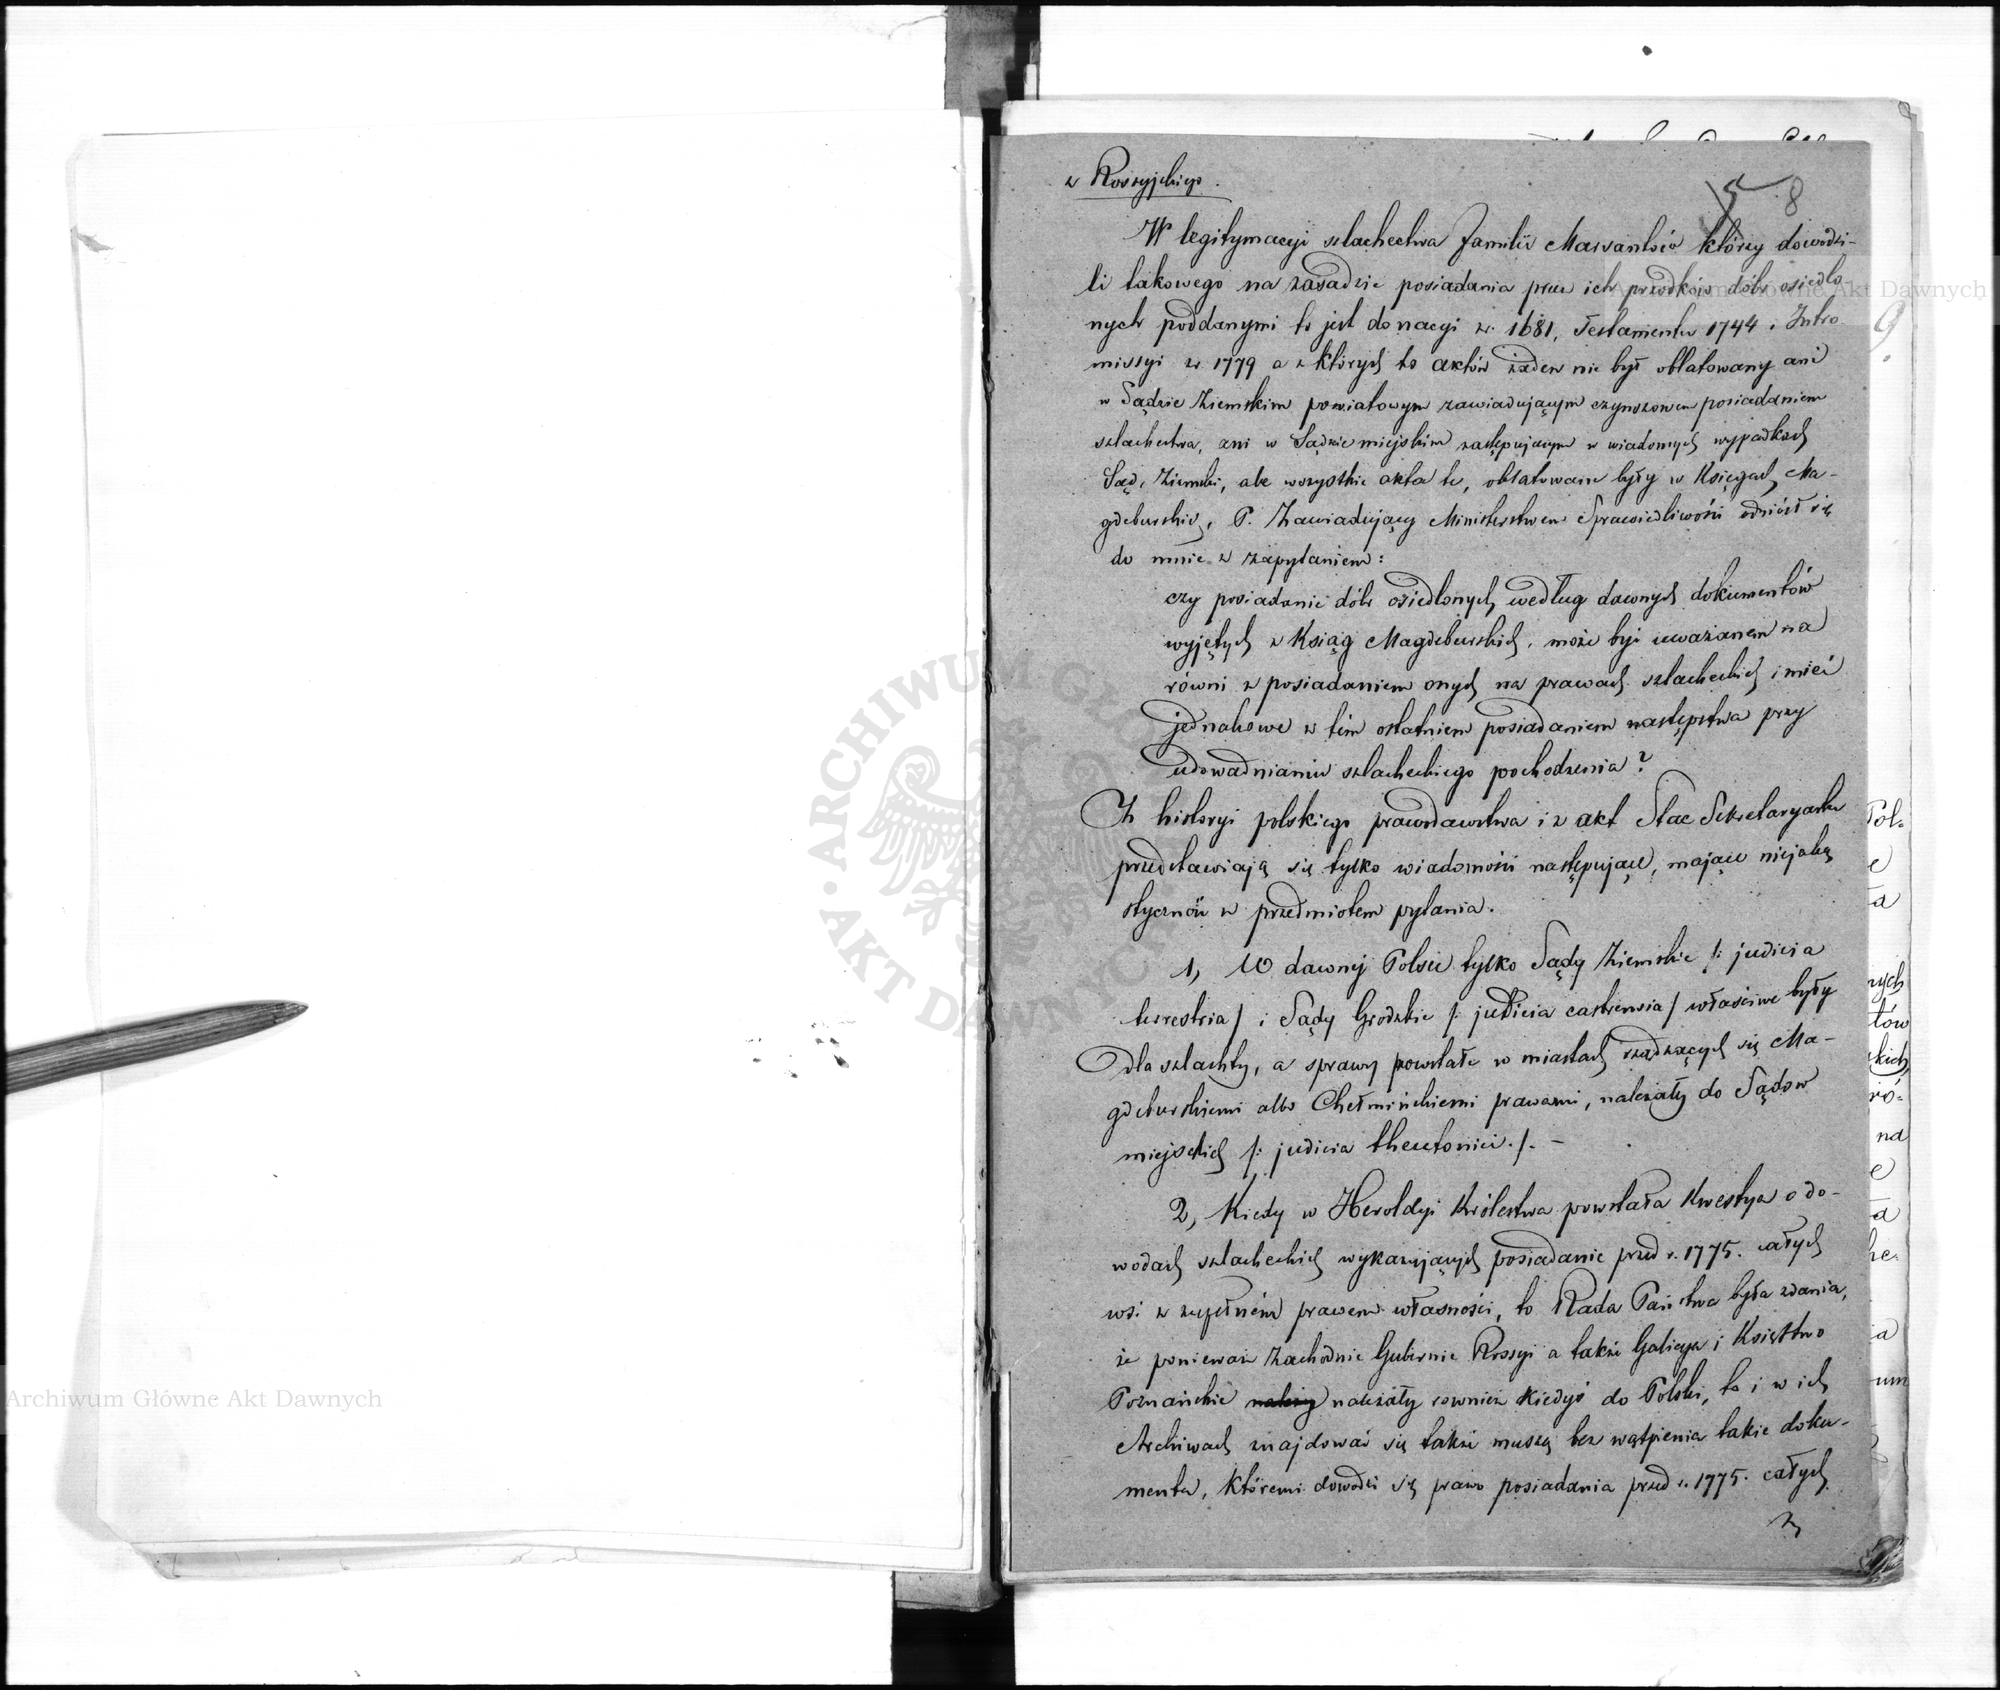 z Rossyjskiego.
5 8
W legitymacyi szlachectwa familii Massantów którzy dowodzi-
li takowego na zasadzie posiadania przez ich przodków dóbr osiedlo
nych poddanymi to jest donacyi z r. 1681, Testamentu 1744 i Intro
missyi z r. 1779 a z których to aktów żaden nie był oblatowany ani
w Sądzie Ziemskim powiatowym zawiadującym czynszowem posiadaniem
szlachectwa, ani w Sądzie miejskim zastępującym w wiadomych wypadkach
Sąd Ziemski, ale wszystkie akta te, oblatowane były w Księgach Ma-
gdeburskich, P. Zawiadujący Ministerstwem Sprawiedliwości odniósł się
do mnie z zapytaniem:
czy posiadanie dóbr osiedlonych według dawnych dokumentów
wyjętych z Ksiąg Magdeburskich, może być uważanem na
równi z posiadaniem onych na prawach szlacheckich i mieć
jednakowe z tém ostatniem posiadaniem następstwa przy
udowadnianiu szlacheckiego pochodzenia?
Z historyi polskiego prawodawstwa i z akt Stac Sekretaryatu
przedstawiają się tylko wiadomości następujące, mające niejaką
styczność z przedmiotem pytania.
1, W dawnej Polsce tylko Sądy Ziemskie /: judicia
terrestria / i Sądy Grodzkie /: judicia castrensia / właściwe były
dla szlachty, a sprawy powstałe w miastach rządzących się Ma-
gdeburskiemi albo Chełmińskiemi prawami, należały do Sądów
miejskich /: judicia theutonici ./. —
2, Kiedy w Heroldyi Królestwa powstała kwestya o do-
wodach szlacheckich wykazujących posiadanie przed r. 1775. całych
wsi z zupełném prawem własności, to Rada Państwa była zdania,
że ponieważ Zachodnie Gubernie Rossyi a także Galicya i Księstwo
Poznańskie należały również kiedyś do Polski, to i w ich
Archiwach znajdować się także muszą bez wątpienia takie doku-
menta, któremi dowodzi się prawo posiadania przed r. 1775. całych
9.
Pol-
e
ta
nych
tów
skich,
ró-
na
e
um
Archiwum Główne Akt Dawnych
Archiwum Główne Akt Dawnych
ARCHIWUM GŁÓWNE AKT DAWNYCH